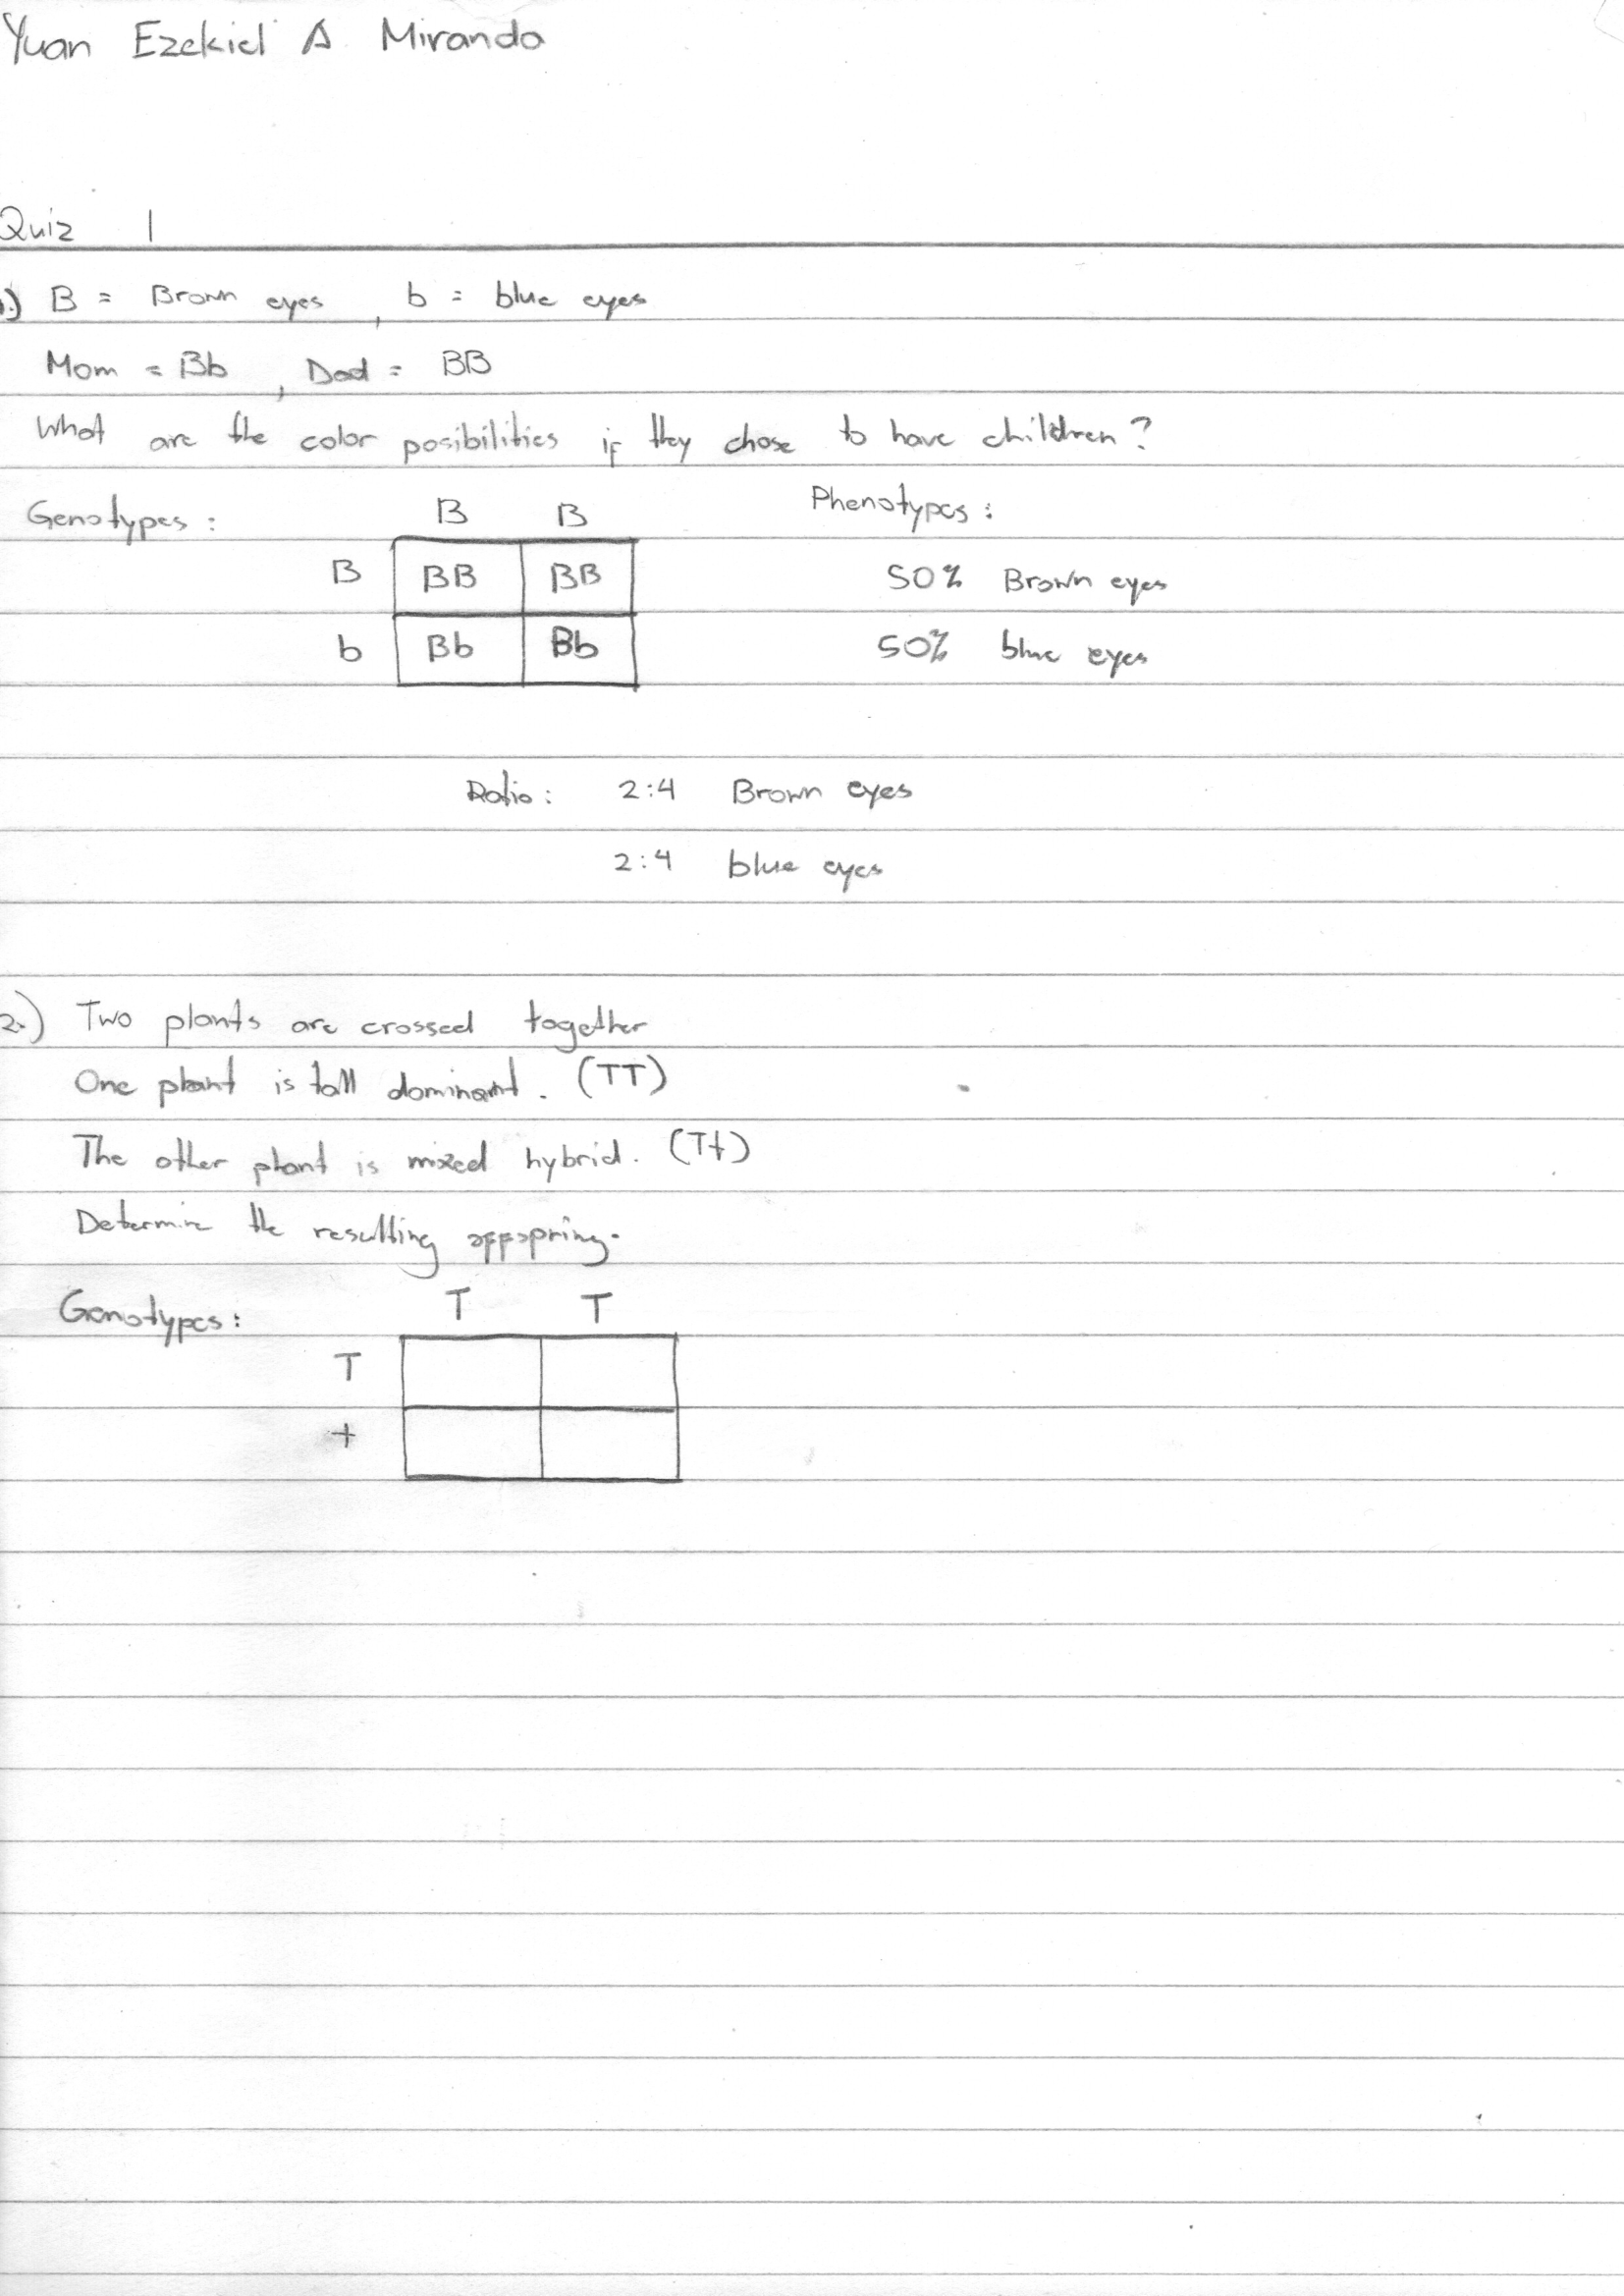 Yuan Ezekiel A Miranda
Quiz 1
1.) B = Brown eyes , b = blue eyes
Mom = Bb , Dad = BB
What are the color posibilities if they chose to have children?
Genotypes: B B Phenotypes:
B BB BB 50% Brown eyes
b Bb Bb 50% blue eyes
Ratio: 2:4 Brown eyes
2:4 blue eyes
2.) Two plants are crossed together
One plant is tall dominant. (TT)
The other plant is mixed hybrid. (Tt)
Determine the resulting offspring.
Genotypes: T T
T
t